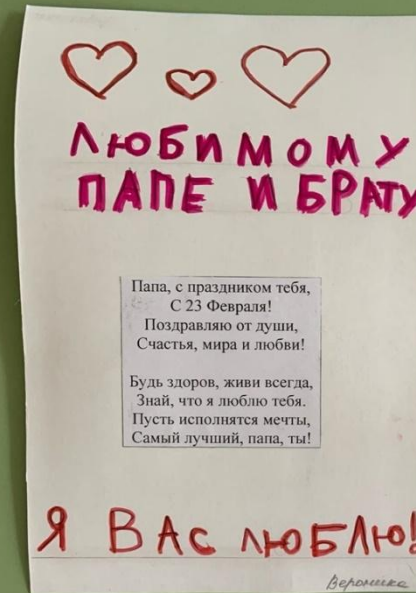 ЛЮБИМОМУ
ПАПЕ И БРАТУ
Папа, с праздником тебя,
С 23 Февраля!
Поздравляю от души,
Счастья, мира и любви!
Будь здоров, живи всегда,
Знай, что я люблю тебя.
Пусть исполнятся мечты,
Самый лучший, папа, ты!
Я ВАС ЛЮБЛЮ!
Вероника